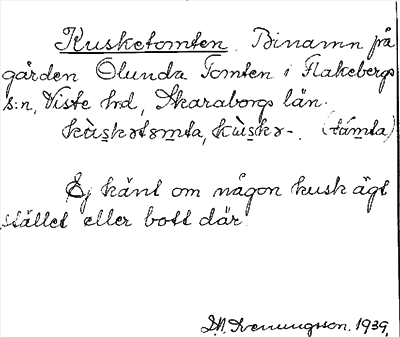 Kusketomten. Binamn på
gården Ölunda Tomten i Flakebergs
s:n, Viste hd, Skaraborgs län.
kùskətomta, kùskə-. (tómta)
Ej känt om någon kusk ägt
stället eller bott där.
Svenungsson. 1939.